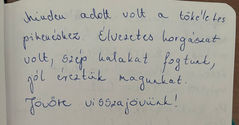 Minden adott volt a tökéletes
pihenéshez. Élvezetes horgászat
volt, szép halakat fogtunk,
jól éreztük magunkat.
Jövőre visszajövünk!